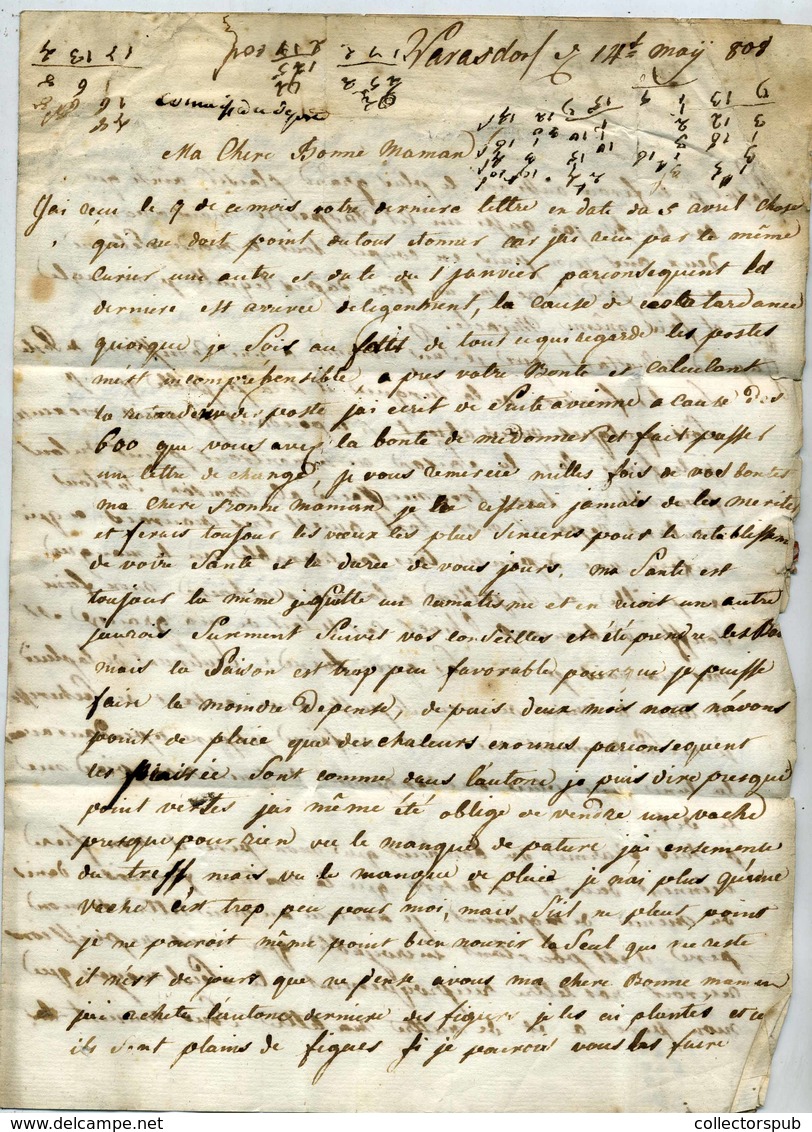 Varasdorf 14t maÿ 808
Ma Chere Bonne Maman
J'ai recu le 9 de ce mois votre derniere lettre en date du 5 avril chose
qui ne doit point du tous etonner car j'ai recu par le même
Curier une autre et date du 1 janvier parconsequent la
derniere est arrivée deligemment, la cause de cette tardance
quoique je Sois au faits de tout ce qui regarde les postes
m'est incomprehensible, apres votre Bonté et Calculant
la des poste j'ai ecrit de Suite a vienne a cause des
600 que vous avez la bonté de me donner et fait passer
une lettre de change, je vous remercie milles fois de vos bontes
ma chere Bonne Maman je ne cesserai jamais de les merites
et ferais toujour les vœux les plus Sinceres pour le retablissem
de votre Santé et la durée de vous jours. ma Santé est
toujour la même je quitte un rumatisme et en recoit un autre
jaurois Surement Suivit vos conseilles et été prendre les
mais la Saison est trop peu favorable pour que je puisse
faire la moindre Depense, depuis deux mois nous n'avons
point de pluie que des chaleurs enormes parconsequent
les prairiée Sont comme dans l'autone je puis dire presque
point vertes j'ai même été obligé de vendre une vache
presque pour rien vu le manque de pature j'ai ensemencé
du treff mais vu le manque de pluie je n'ai plus qu'une
vache c'est trop peu pour moi, mais S'il ne pleut point
je ne pouroit même point bien nourir la Seul que me reste
il n'est de jours que ne pense a vous ma chere Bonne maman
j'ai acheté l'autone derniere des figuiers je les ai plantés et
ils Sont plains de figues Si je pourois vous les faire
collectorspub